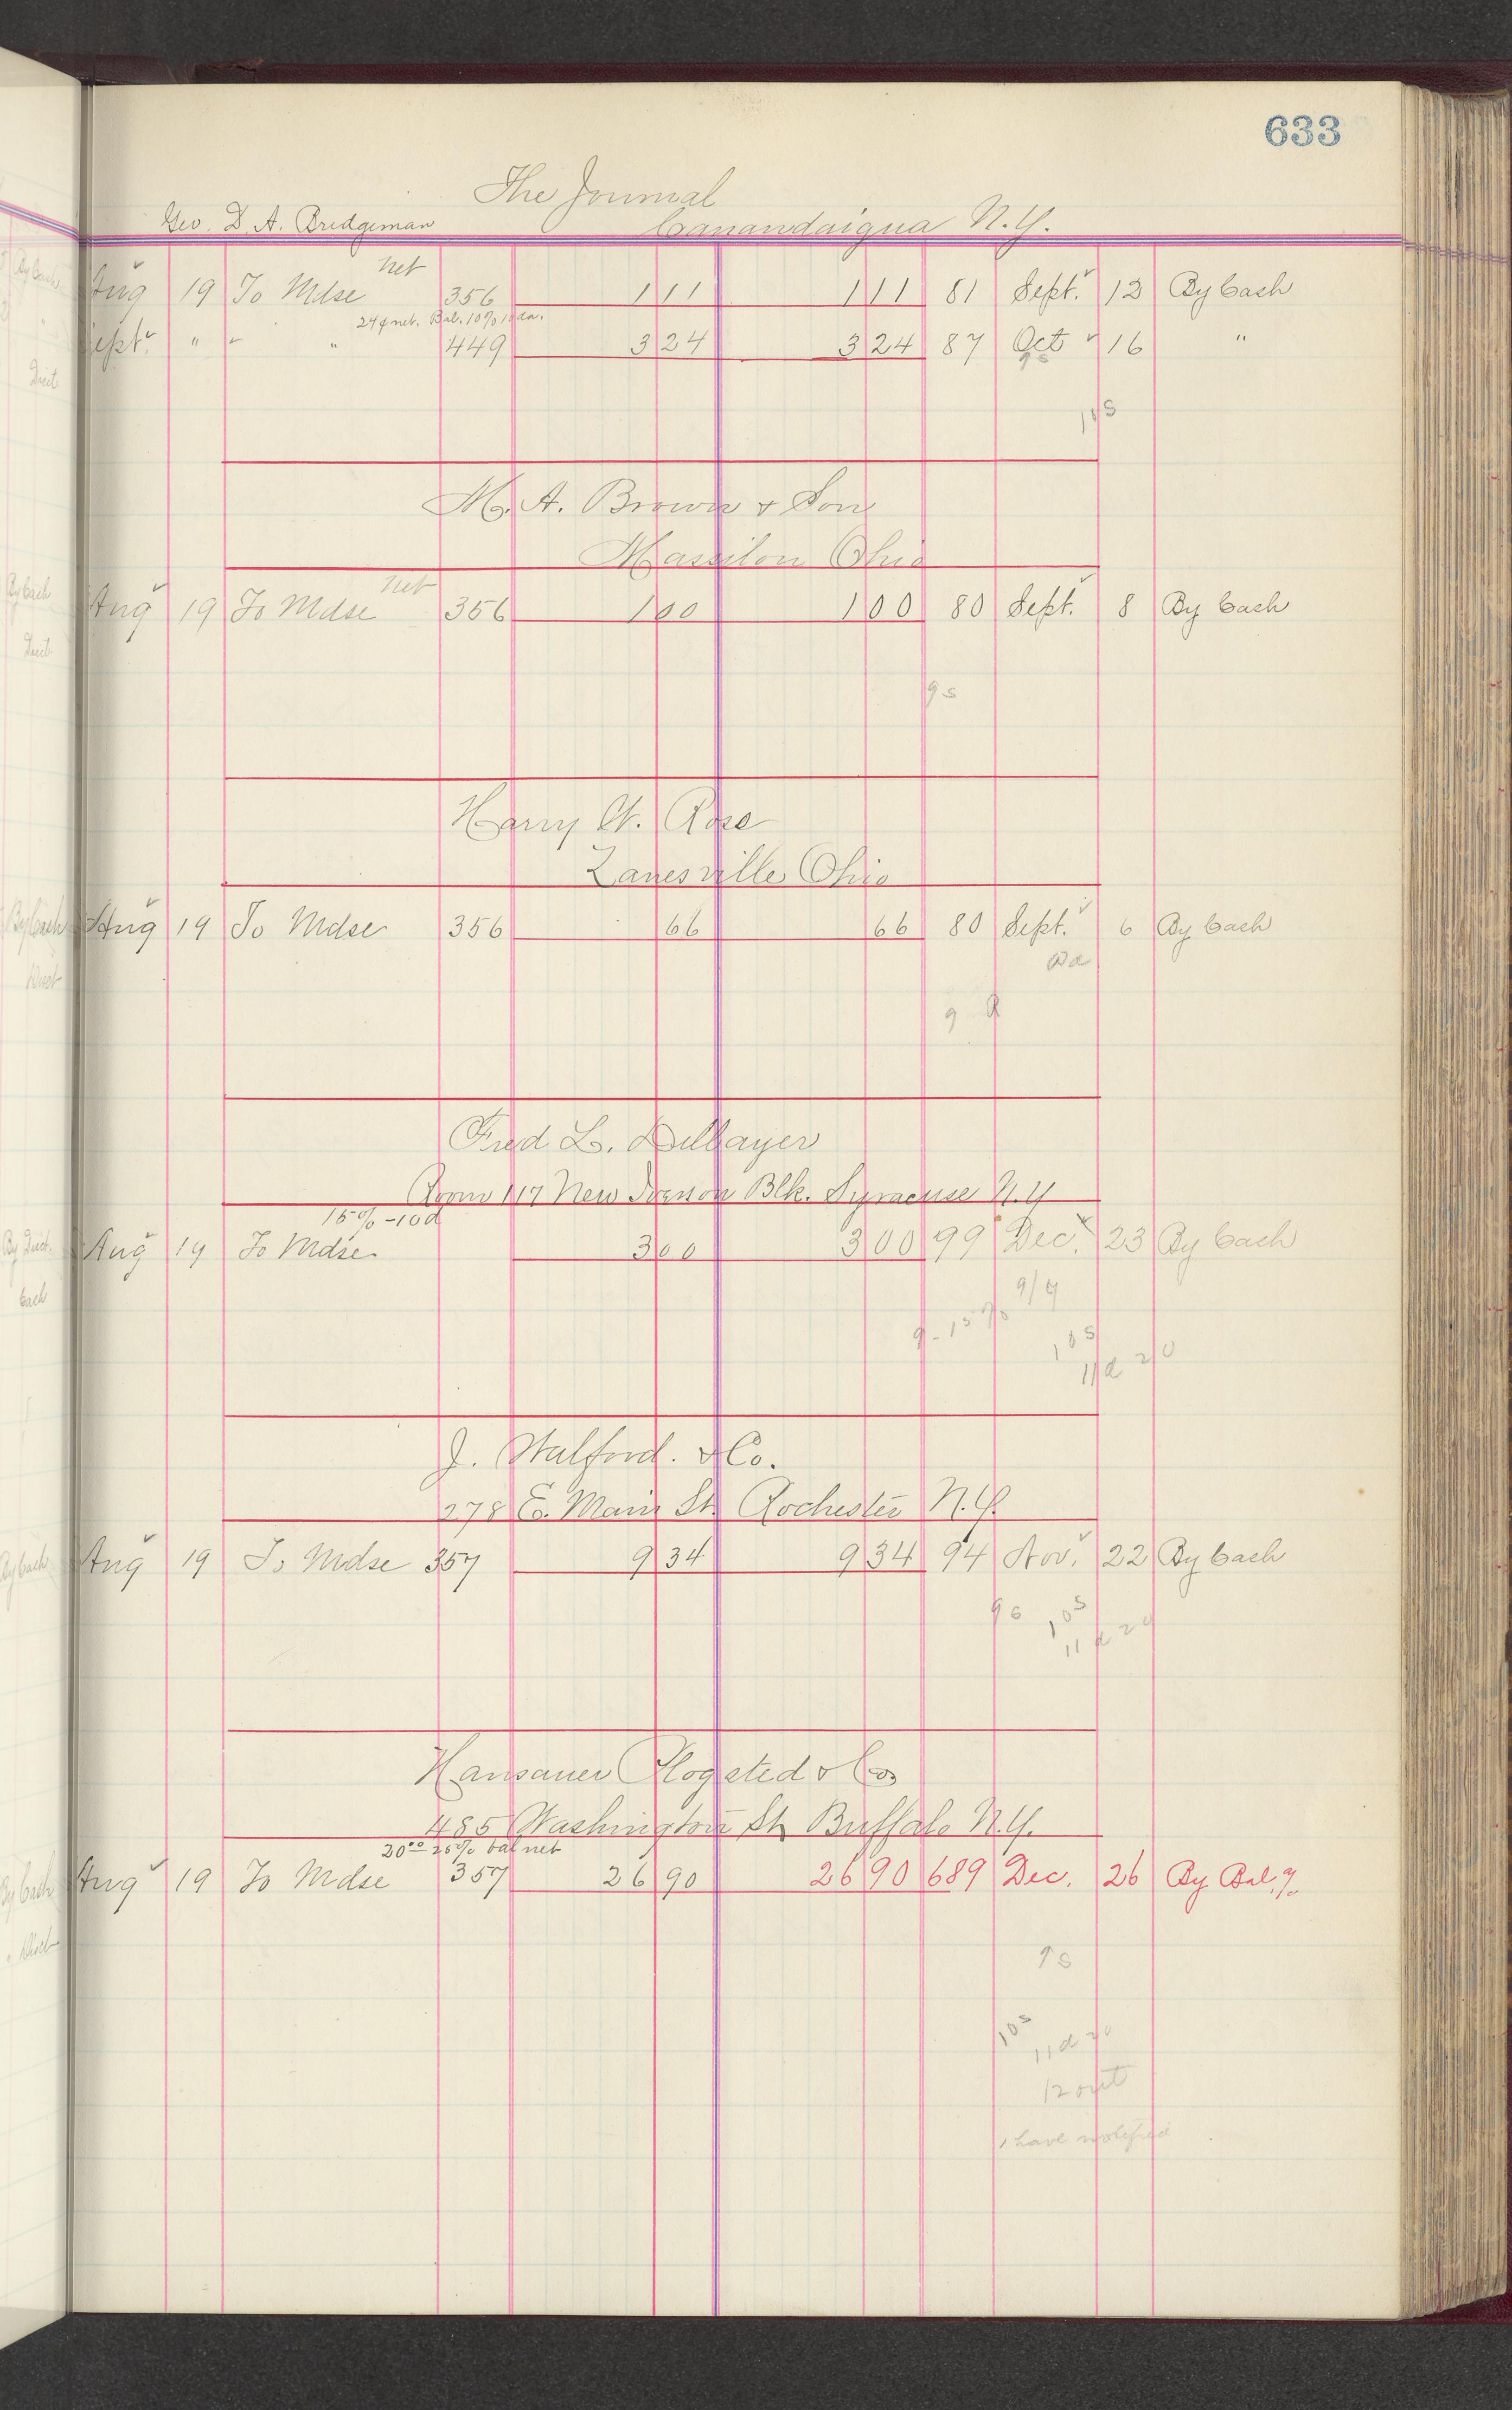 633
The Journal
Geo. D. A. Bridgeman Canandaigua N.Y.
net
Aug 19 To Mdse 356 1 11 1 11 81 Sept. 12 By Cash
24¢ net. Bal. 10% 10 da.
Sept. " " " 449 3 24 3 24 87 Oct 16 "
9s
10s
M. A. Brown & Son
Massilon Ohio
net
Aug 19 To Mdse 356 1 00 1 00 80 Sept. 8 By Cash
9s
Harry W. Rose
Zanesville Ohio
Aug 19 To Mdse 356 66 66 80 Sept. 6 By Cash
9
Fred L. Dillayer
Room 117 New Blk. Syracuse N.Y
15% - 10d
Aug 19 To Mdse 3 00 3 00 99 Dec. 23 By Cash
9/9
9 - 15%
10s
11d 20
J. Walford. & Co.
278 E. Main St. Rochester N.Y.
Aug 19 To Mdse 357 9 34 9 34 94 Nov. 22 By Cash
9s 10s
11d 20
Hansauer Clogsted & Co
485 Washington St Buffalo N.Y.
20°° 25% bal net
Aug 19 To Mdse 357 26 90 26 90 689 Dec. 26 By Bal.
9s
10s
11d 20
12 out
I have notified